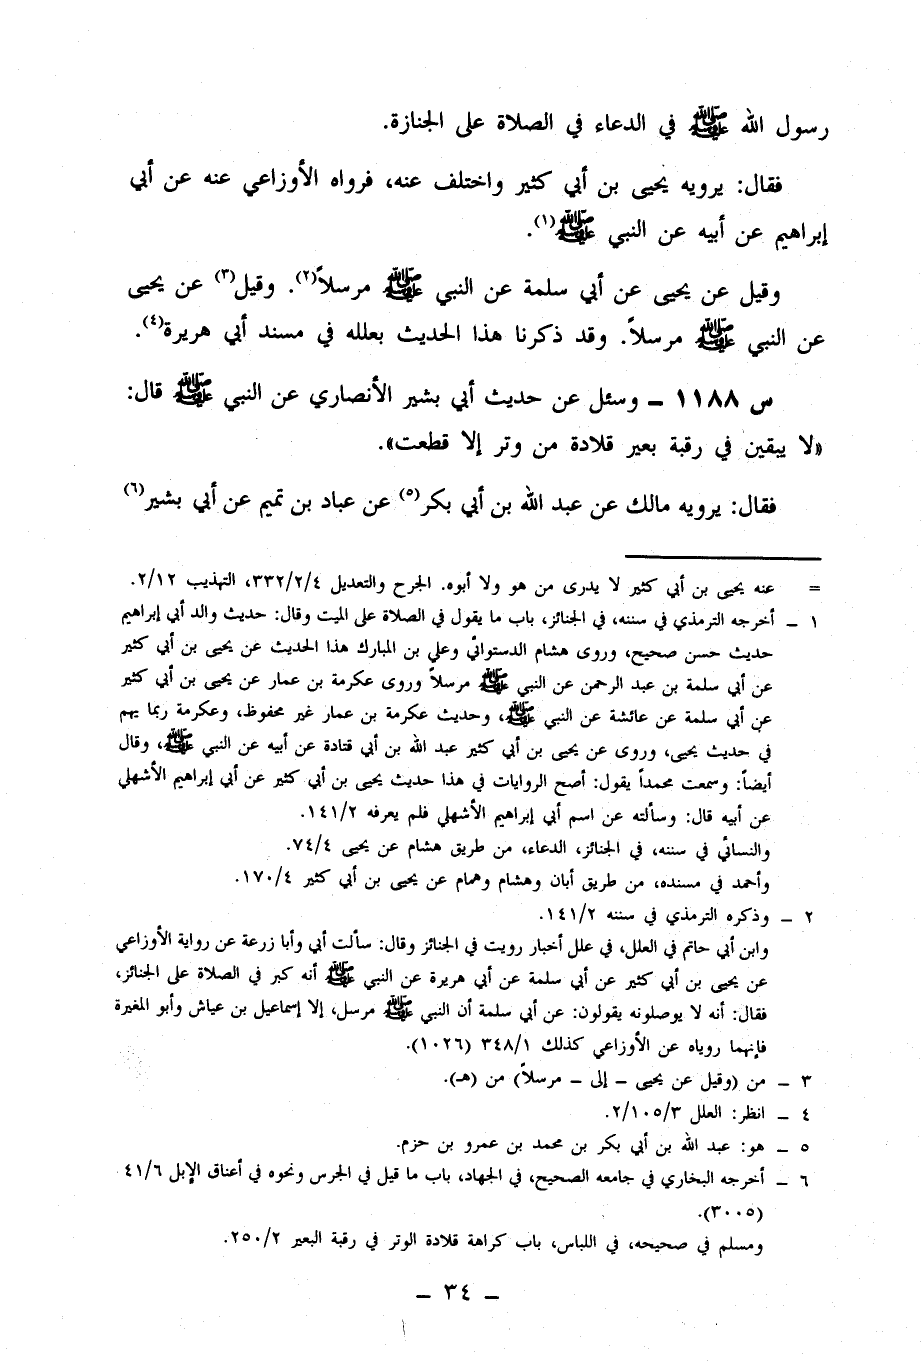 رسول الله ﷺ في الدعاء في الصلاة على الجنازة.
فقال: يرويه يحيى بن أبي كثير واختلف عنه، فرواه الأوزاعي عنه عن أبي
إبراهيم عن أبيه عن النبي ﷺ(١).
وقيل عن يحيى عن أبي سلمة عن النبي ﷺ مرسلاً(٢). وقيل(٣) عن يحيى
عن النبي ﷺ مرسلاً. وقد ذكرنا هذا الحديث بعلله في مسند أبي هريرة(٤).
س ١١٨٨ – وسئل عن حديث أبي بشير الأنصاري عن النبي ﷺ قال:
«لا يبقين في رقبة بعير قلادة من وتر إلا قطعت».
فقال: يرويه مالك عن عبد الله بن أبي بكر(٥) عن عباد بن تميم عن أبي بشير(٦)
= عنه يحيى بن أبي كثير لا يدرى من هو ولا أبوه. الجرح والتعديل ٣٣٢/٢/٤، التهذيب ٢/١٢.
١ – أخرجه الترمذي في سننه، في الجنائز، باب ما يقول في الصلاة على الميت وقال: حديث والد أبي إبراهيم
حديث حسن صحيح، وروى هشام الدستوائي وعلي بن المبارك هذا الحديث عن يحيى بن أبي كثير
عن أبي سلمة بن عبد الرحمن عن النبي ﷺ مرسلاً وروى عكرمة بن عمار عن يحيى بن أبي كثير
عن أبي سلمة عن عائشة عن النبي ﷺ، وحديث عكرمة بن عمار غير محفوظ، وعكرمة ربما يهم
في حديث يحيى، وروى عن يحيى بن أبي كثير عبد الله بن أبي قتادة عن أبيه عن النبي ﷺ، وقال
أيضاً: وسمعت محمداً يقول: أصح الروايات في هذا حديث يحيى بن أبي كثير عن أبي إبراهيم الأشهلي
عن أبيه قال: وسألته عن اسم أبي إبراهيم الأشهلي فلم يعرفه ١٤١/٢.
والنسائي في سننه، في الجنائز، الدعاء، من طريق هشام عن يحيى ٧٤/٤.
وأحمد في مسنده، من طريق أبان وهشام وهمام عن يحيى بن أبي كثير ١٧٠/٤.
٢ – وذكره الترمذي في سننه ١٤١/٢.
وابن أبي حاتم في العلل، في علل أخبار رويت في الجنائز وقال: سألت أبي وأبا زرعة عن رواية الأوزاعي
عن يحيى بن أبي كثير عن أبي سلمة عن أبي هريرة عن النبي ﷺ أنه كبر في الصلاة على الجنائز،
فقال: أنه لا يوصلونه يقولون: عن أبي سلمة أن النبي ﷺ مرسل، إلا إسماعيل بن عياش وأبو المغيرة
فإنهما روياه عن الأوزاعي كذلك ٣٤٨/١ (١٠٢٦).
٣ – من (وقيل عن يحيى – إلى – مرسلاً) من (هـ).
٤ – انظر: العلل ٢/١٠٥/٣.
٥ – هو: عبد الله بن أبي بكر بن محمد بن عمرو بن حزم.
٦ – أخرجه البخاري في جامعه الصحيح، في الجهاد، باب ما قيل في الجرس ونحوه في أعناق الإبل ٤١/٦
(٣٠٠٥).
ومسلم في صحيحه، في اللباس، باب كراهة قلادة الوتر في رقبة البعير ٢٥٠/٢.
– ٣٤ –